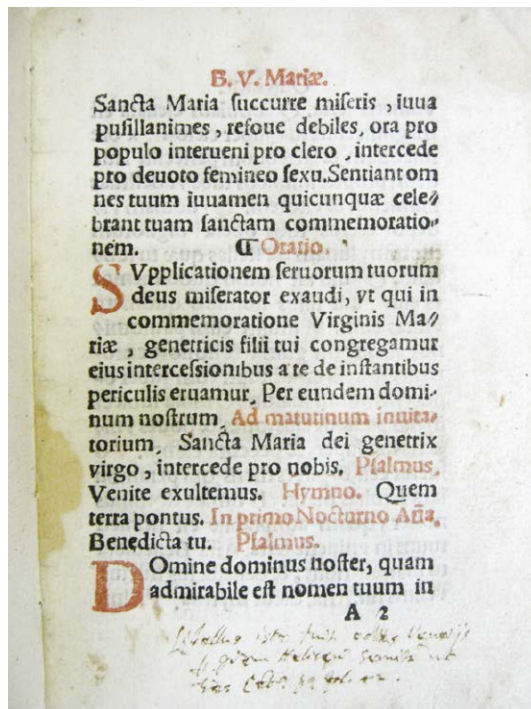 B. V. Mariæ.
Sancta Maria ſuccurre miſeris , iuua
puſillanimes , refoue debiles, ora pro
populo interueni pro clero , intercede
pro deuoto femineo ſexu.Sentiant om
nes tuum iuuamen quicunquæ cele⸗
brant tuam ſanctam commemoratio⸗
nem. ¶ Oratio.
SVpplicationem ſeruorum tuorum
deus miſerator exaudi, vt qui in
commemoratione Virginis Ma⸗
riæ , genetricis filii tui congregamur
eius interceſsionibus a te de inſtantibus
periculis eruamur, Per eundem domi⸗
num noſtrum, Ad matutinum inuita⸗
torium, Sancta Maria dei genetrix
virgo , intercede pro nobis, Pſalmus,
Venite exultemus. Hymno. Quem
terra pontus. In primo Nocturno Añã,
Benedicta tu. Pſalmus.
DOmine dominus noſter, quam
admirabile eſt nomen tuum in
A 2
iste fuit